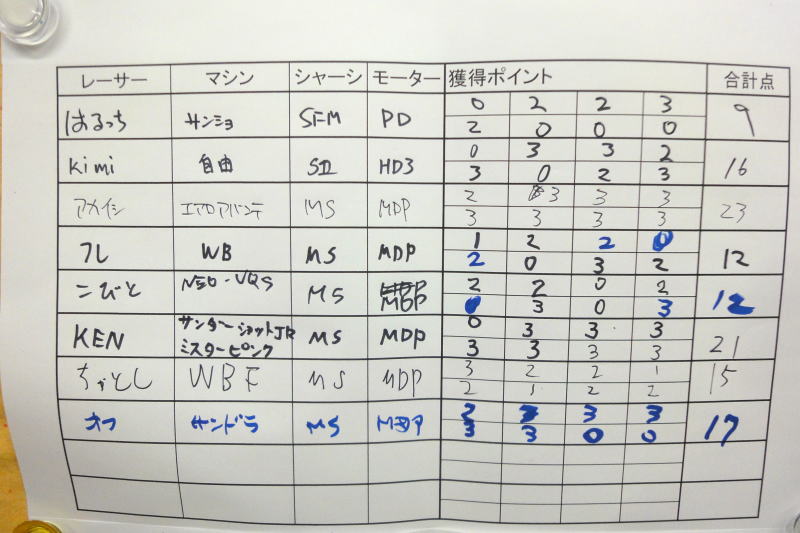 レーサー マシン シャーシ モーター 獲得ポイント 合計点
はるっち サンショ SFM PD 0 2 2 3 9
2 0 0 0
kimi 自由 SII HD3 0 3 3 2 16
3 0 2 3
アメイシ エアロアバンテ MS MDP 2 3 3 3 23
3 3 3 3
フレ WB MS MDP 1 2 2 0 12
2 0 3 2
こびと NEO-VQS MS MDP 2 2 0 2 12
0 3 0 3
KEN サンダーショットJR MS MDP 0 3 3 3 21
ミスターピンク 3 3 3 3
ちっとし WBF MS MDP 3 2 2 1 15
2 1 2 2
オフ サンドラ MS MDP 2 3 3 3 17
3 3 0 0